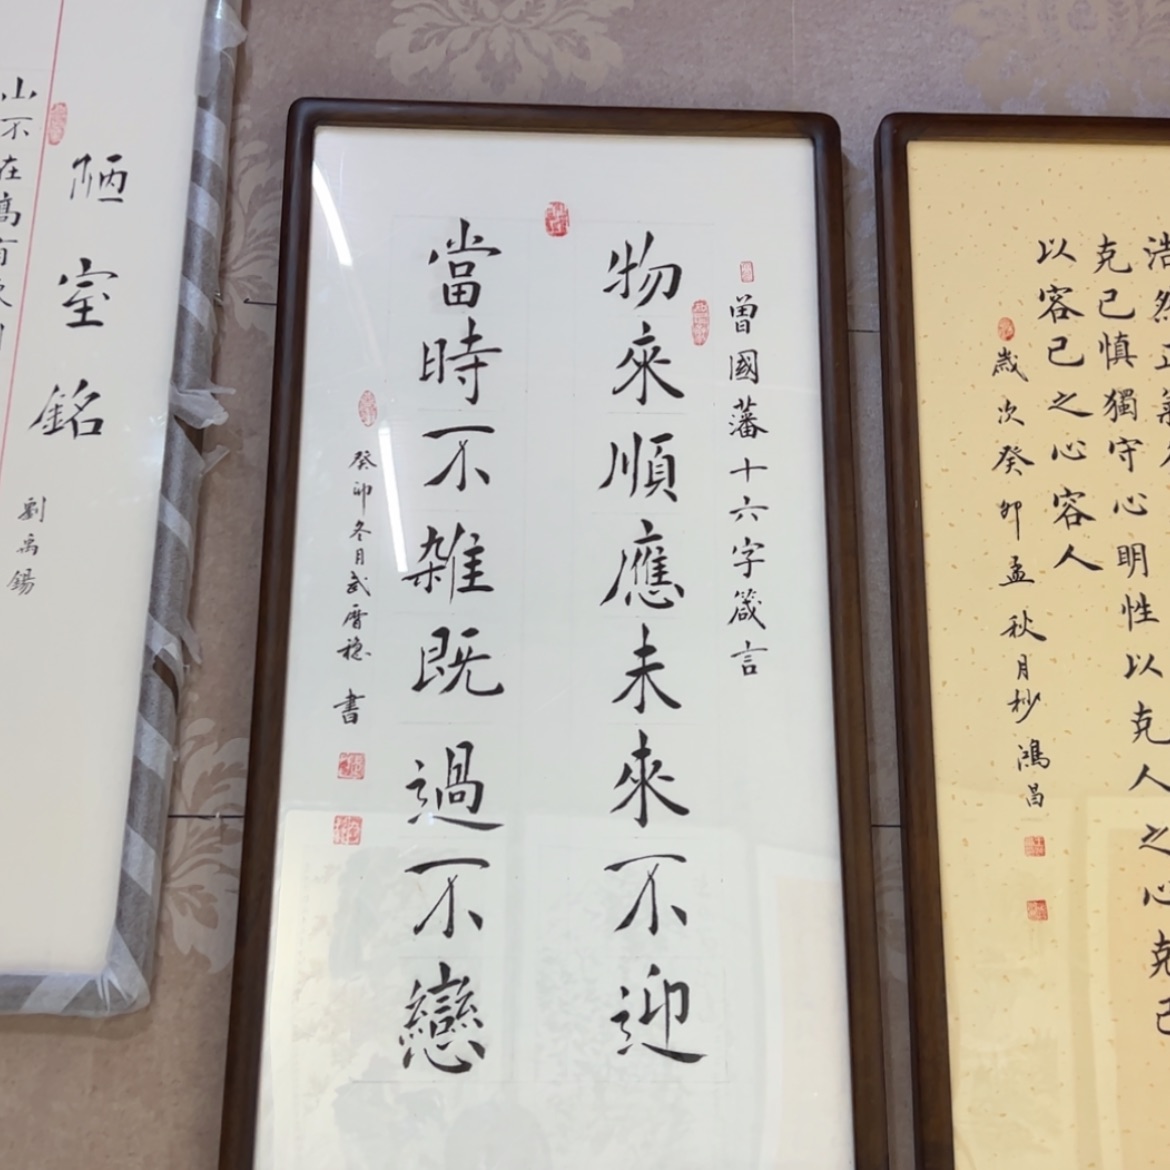 浩然正氣
克己慎獨守心明性以克人之心克己
以容己之心容人
歲次癸卯孟秋月杪鴻昌
曾國藩十六字箴言
物來順應未來不迎
當時不雜既過不戀
癸卯冬月武穩書
陋室銘
劉禹錫
山不在高有